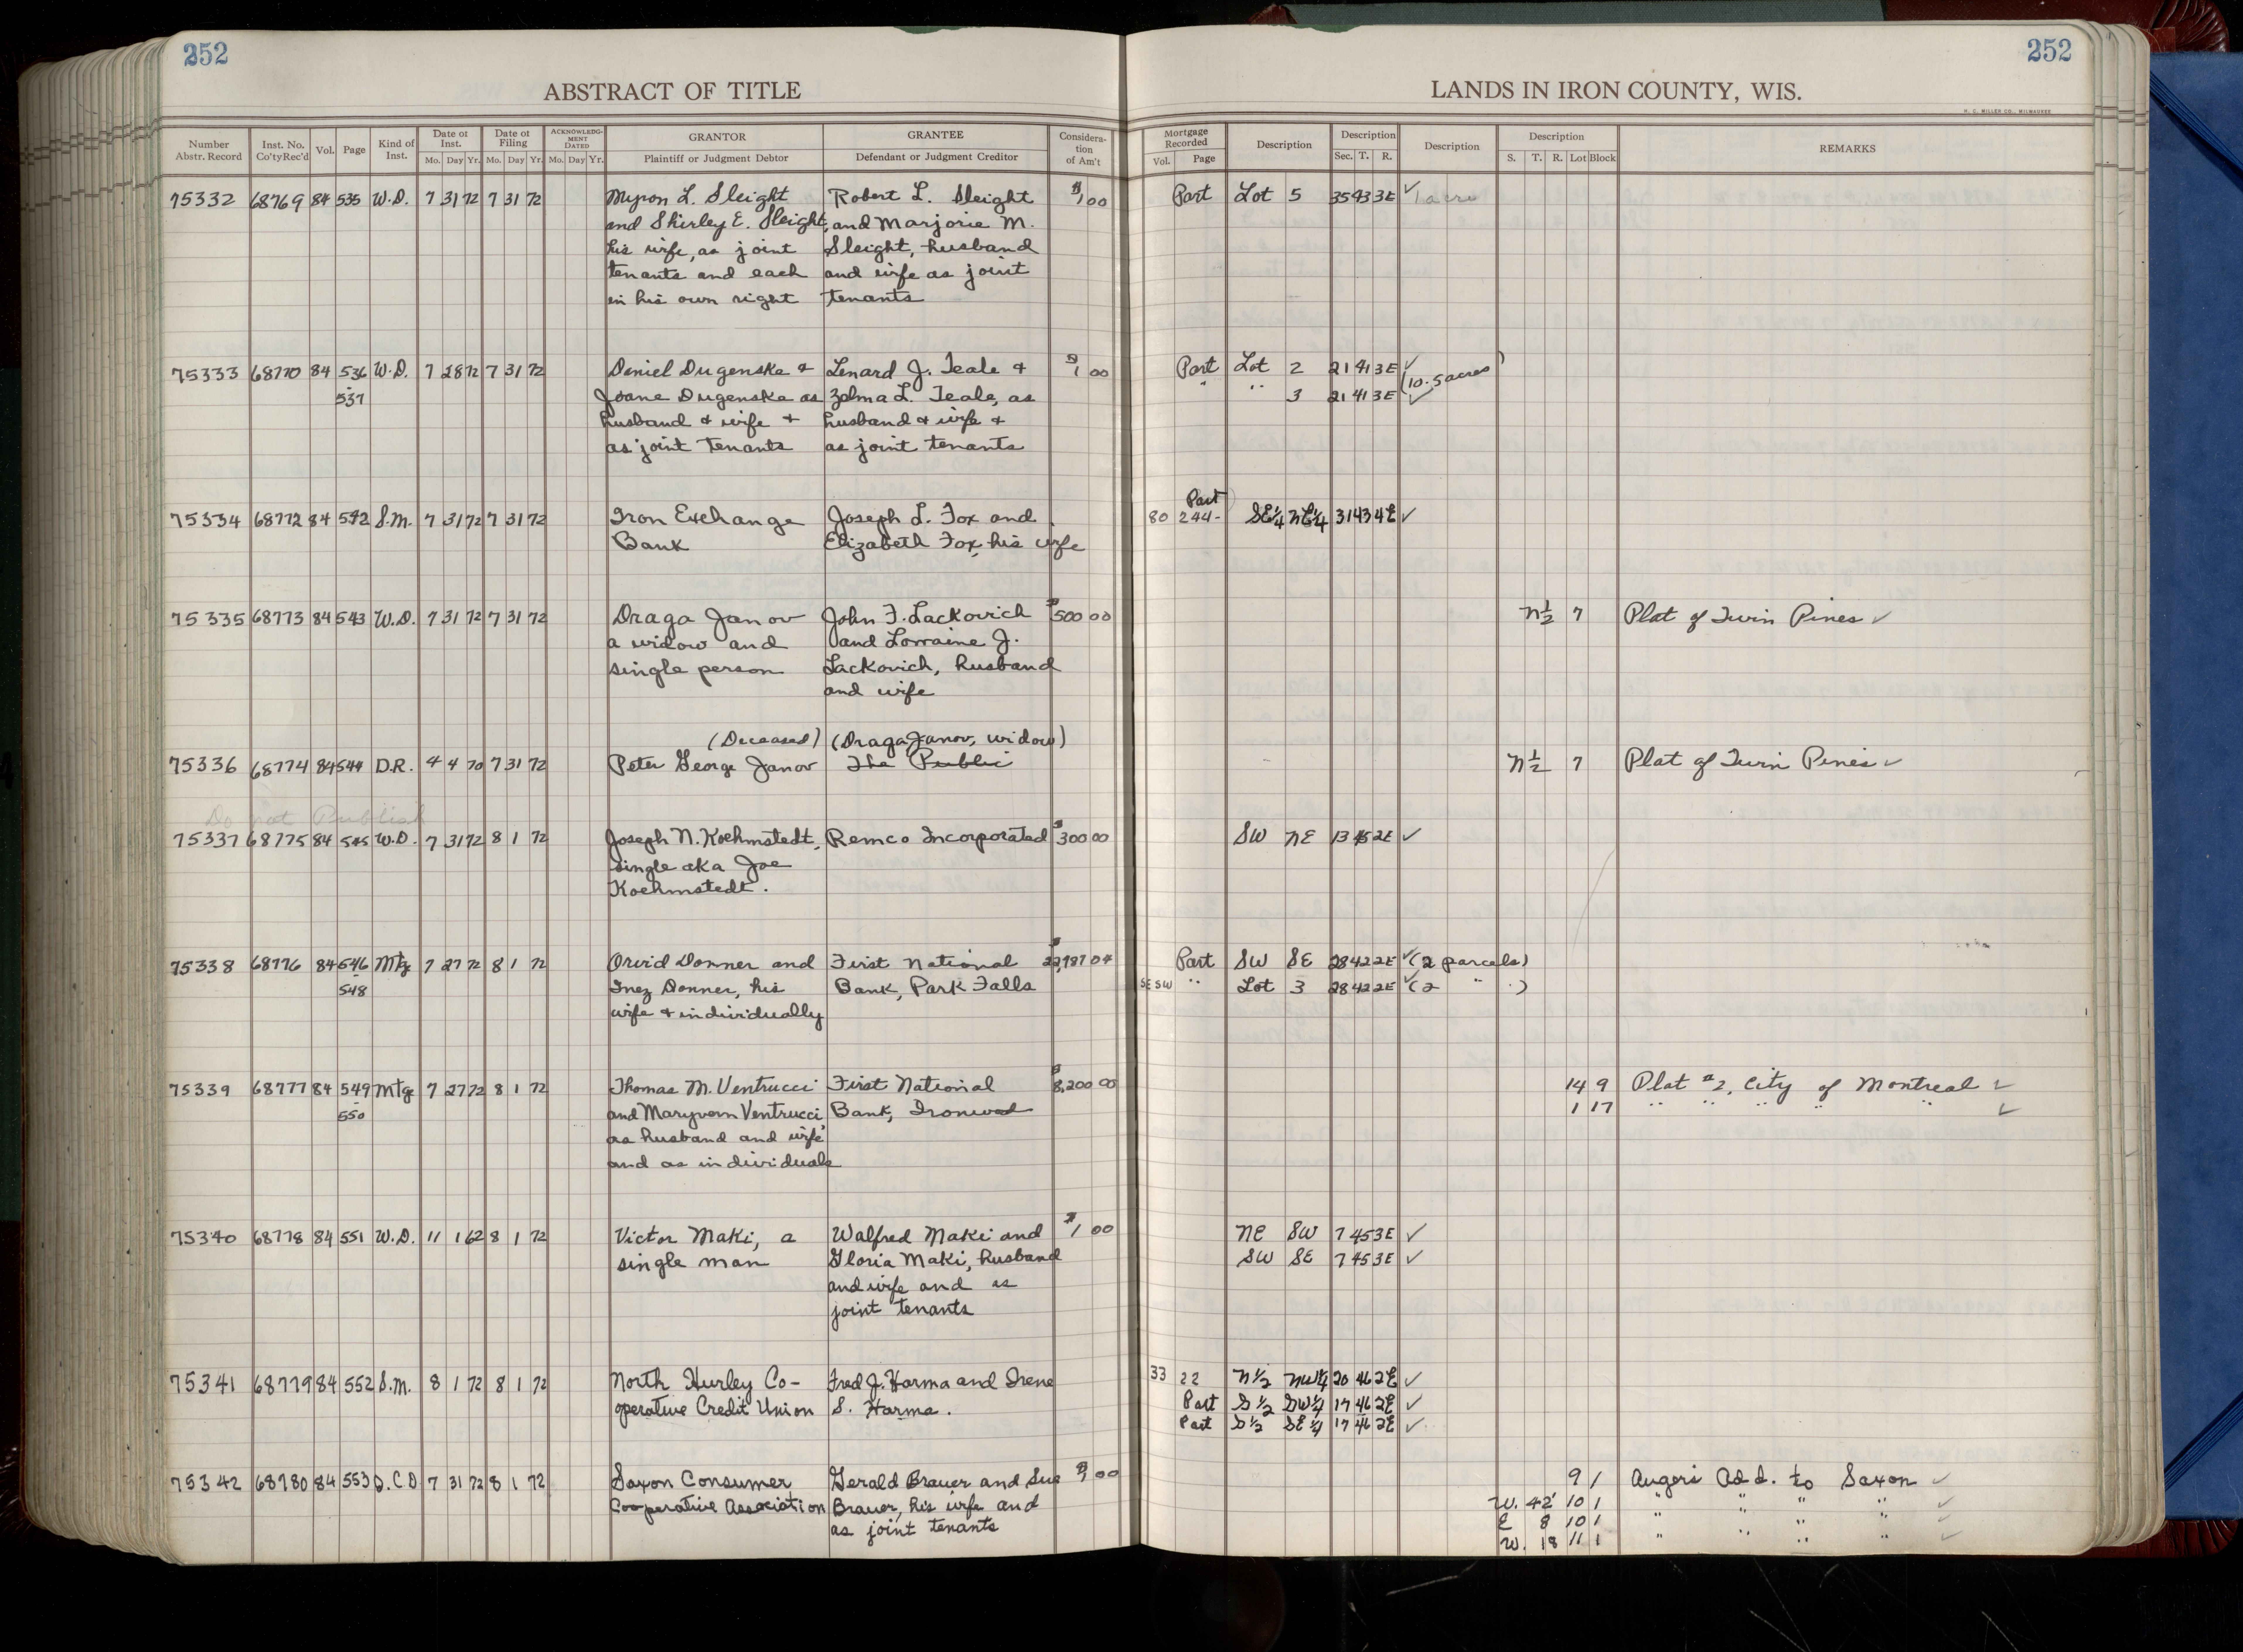 252
252
ABSTRACT OF TITLE
LANDS IN IRON COUNTY, WIS.
H. C. MILLER CO., MILWAUKEE
Number Abstr. Record Inst. No. Co'tyRec'd Vol. Page Kind of Inst. Date of Inst. Mo. Day Yr. Date of Filing Mo. Day Yr. ACKNOWLEDGMENT DATED Mo. Day Yr. GRANTOR Plaintiff or Judgment Debtor GRANTEE Defendant or Judgment Creditor Consideration of Am't
Mortgage Recorded Vol. Page Description Description Sec. T. R. Description Description S. T. R. Lot Block REMARKS
75332 68769 84 535 W.D. 7 31 72 7 31 72 Myron L. Sleight Robert L. Sleight $1 00 Part Lot 5 35 43 3E ✓ 1 acre
and Shirley E. Sleight, and Marjorie M.
his wife, as joint Sleight, husband
tenants and each and wife as joint
in his own right tenants
75333 68770 84 536 W.D. 7 28 72 7 31 72 Deniel Dugenske + Lenard J. Teale + $1 00 Part Lot 2 21 41 3E ✓ (10.5 acres)
- 537 Joane Dugenska as Zelma L. Teale, as " " 3 21 41 3E ✓
husband + wife + husband + wife +
as joint tenants as joint tenants
Part
75334 68772 84 542 S.M. 7 31 72 7 31 72 Iron Exchange Joseph L. Fox and 80 244- SE¼ NE¼ 31 43 4E ✓
Bank Elizabeth Fox, his wife
75335 68773 84 543 W.D. 7 31 72 7 31 72 Draga Janov John F. Lackovich $500 00 N½ 7 Plat of Twin Pines ✓
a widow and and Lorraine J.
single person Lackovich, husband
and wife
(Deceased) (Draga Janov, widow)
75336 68774 84 544 D.R. 4 4 70 7 31 72 Peter George Janov The Public N½ 7 Plat of Twin Pines ✓
Do not Publish
75337 68775 84 545 W.D. 7 31 72 8 1 72 Joseph N. Koehmstedt, Remco Incorporated $300 00 SW NE 13 45 2E ✓
single aka Joe
Koehmstedt.
75338 68776 84 546 Mtg 7 27 72 8 1 72 Orvid Donner and First National 04 Part SW SE 28 42 2E ✓ (2 parcels)
- 548 Inez Donner, his Bank, Park Falls SE SW " Lot 3 28 42 2E ✓ (2 " )
wife + individually
75339 68777 84 549 Mtg 7 27 72 8 1 72 Thomas M. Ventrucci First National $8,200 00 14 9 Plat #2, City of Montreal ✓
- 550 and Maryvern Ventrucci, Bank, Ironwood 1 17 " " " " " ✓
as husband and wife
and as individuals
75340 68778 84 551 W.D. 11 1 62 8 1 72 Victor Maki, a Walfred Maki and $1 00 NE SW 7 45 3E ✓
single man Gloria Maki, husband SW SE 7 45 3E ✓
and wife and as
joint tenants
75341 68779 84 552 S.M. 8 1 72 8 1 72 North Hurley Co- Fred J. Harma and Irene 33 22 N½ NW¼ 20 46 2E ✓
operative Credit Union S. Harma. Part S½ SW¼ 17 46 2E ✓
Part S½ SE¼ 17 46 2E ✓
75342 68780 84 553 Q.C.D 7 31 72 8 1 72 Saxon Consumer Gerald Brauer and Sue $1 00 9 1 Augers Add. to Saxon ✓
Cooperative Association Brauer, his wife and W. 42' 10 1 " " " " ✓
as joint tenants E 8 10 1 " " " " ✓
W. 18 11 1 " " " " ✓